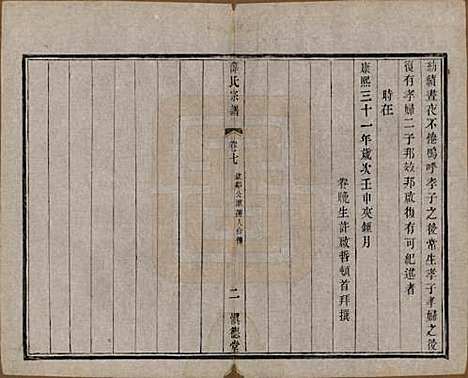 紡績晝夜不倦嗚呼孝子之後常生孝子孝婦之後
復有孝婦二子邦效邦啟復有可紀述者
時在
康熙三十一年歲次壬申夾鐘月
眷晚生許啟哲頓首拜撰
氏宗譜
卷七
二
惧德堂